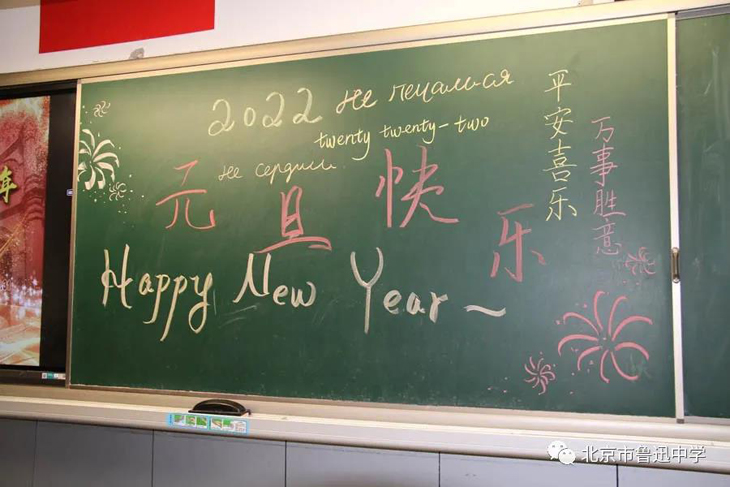 2022 не печалься
twenty twenty-two
не сердись
元旦快乐
Happy New Year~
平安喜乐
万事胜意
年
北京市鲁迅中学